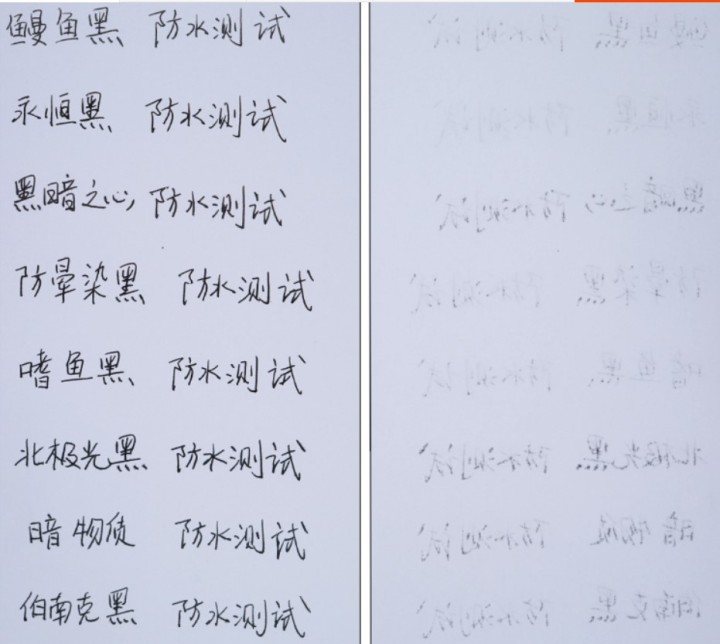 鳗鱼黑 防水测试
永恒黑 防水测试
黑暗之心 防水测试
防晕染黑 防水测试
嗜鱼黑 防水测试
北极光黑 防水测试
暗物质 防水测试
伯南克黑 防水测试